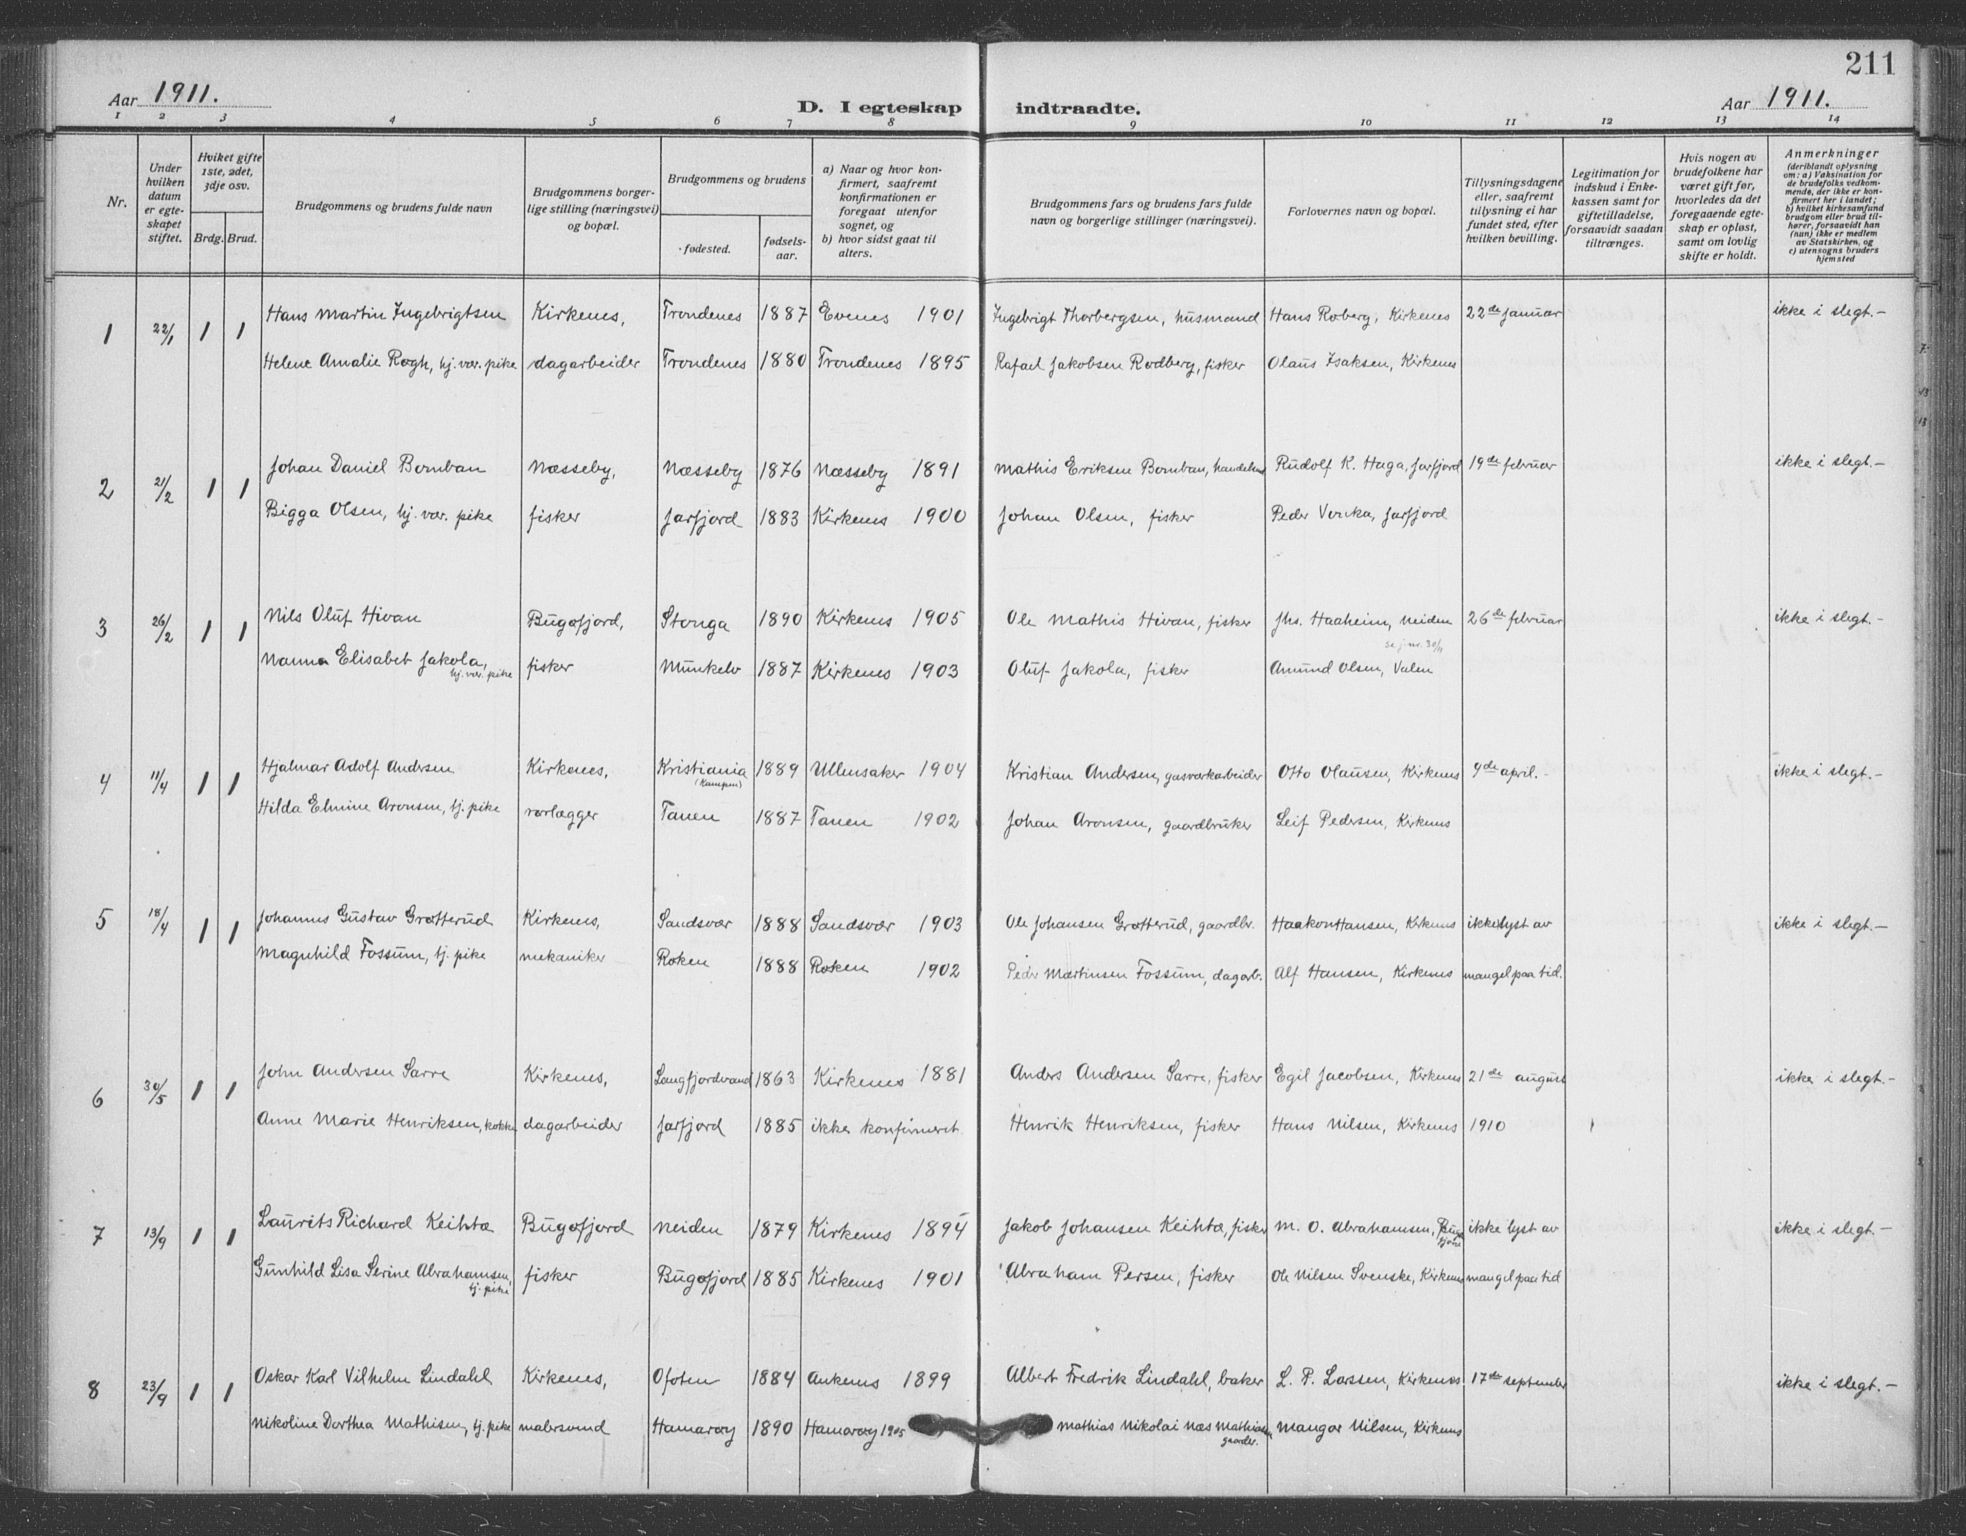 211
Aar 1911.
D. I egteskap indtraadte.
Aar 1911.
1 2 3 4 5 6 7 8 9 10 11 12 13 14
Nr.
Under hvilken datum er egteskapet stiftet.
Hviket gifte 1ste, 2det, 3dje osv.
Brdg. Brud.
Brudgommens og brudens fulde navn
Brudgommens borgerlige stilling (næringsvei) og bopæl.
Brudgommens og brudens
fødested.
fødselsaar.
a) Naar og hvor konfirmert, saafremt konfirmationen er foregaat utenfor sognet, og
b) hvor sidst gaat til alters.
Brudgommens fars og brudens fars fulde navn og borgerlige stillinger (næringsvei).
Forlovernes navn og bopæl.
Tillysningsdagene eller, saafremt tillysning ei har fundet sted, efter hvilken bevilling.
Legitimation for indskud i Enkekassen samt for giftetilladelse, forsaavidt saadan tiltrænges.
Hvis nogen av brudefolkene har været gift før, hvorledes da det foregaaende egteskap er opløst, samt om lovlig skifte er holdt.
Anmerkninger
(deriblandt oplysning om: a) Vaksination for de brudefolks vedkommende, der ikke er konfirmert her i landet; b) hvilket kirkesamfund brudgom eller brud tilhører, forsaavidt han (hun) ikke er medlem av Statskirken, og c) utensogns bruders hjemsted
1 22/1 1 1 Hans Martin Ingebrigtsen Kirkenes, Trondenes 1887 Evenes 1901 Ingebrigt Thorbergsen, husmand Hans Roberg, Kirkenes 22de januar ikke i slegt.-
Helene Amalie Rogh, hj. vær. pike dagarbeider Trondenes 1880 Trondenes 1895 Rafael Jakobsen Rødberg, fisker Olaus Isaksen, Kirkenes
2 21/2 1 1 Johan Daniel Bomban Næsseby, Næsseby 1876 Næsseby 1891 Mathis Eriksen Bomban, Rudolf K. Haga, Jarfjord 19de februar ikke i slegt.-
Bigga Olsen, hj. vær. pike fisker Jarfjord 1883 Kirkenes 1900 Johan Olsen, fisker Peder Jarfjord
3 26/2 1 1 Nils Oluf Hivan Bugøfjord, Stonga 1890 Kirkenes 1905 Ole Mathis Hivan, fisker Jhs. Haaheim, Neiden 26de februar ikke i slegt.-
Nanna Elisabet Jakola, hj. vær. pike fisker Munkelv 1887 Kirkenes 1903 Oluf Jakola, fisker Amund Olsen, Valen
4 11/4 1 1 Hjalmar Adolf Andersen Kirkenes, Kristiania (Kampen) 1889 Ullensaker 1904 Kristian Andersen, gasverkarbeider Otto Olausen, Kirkenes 9de april.- ikke i slegt.-
Hilda Elmine Aronsen, tj. pike rørlægger Tanen 1887 Tanen 1902 Johan Aronsen, gaardbruker Leif Pedersen, Kirkenes
5 18/4 1 1 Johannes Gustav Grøtterud Kirkenes, Sandsvær 1888 Sandsvær 1903 Ole Johansen Grøtterud, gaardbr. Haakon Hansen, Kirkenes ikke lyst av ikke i slegt.-
Magnhild Fossum, tj. pike mekaniker Røken 1888 Røken 1902 Peder Martinsen Fossum, dagarb. Alf Hansen, Kirkenes mangel paa tid.
6 30/5 1 1 John Andersen Sarre Kirkenes, Langfjordvand 1863 Kirkenes 1881 Anders Andersen Sarre, fisker Egil Jacobsen, Kirkenes 21de august ikke i slegt.-
Anne Marie Henriksen, kokke dagarbeider Jarfjord 1885 ikke konfirmeret. Henrik Henriksen, fisker Hans Nilsen, Kirkenes 1910
7 13/9 1 1 Laurits Richard Keihtæ Bugøfjord Neiden 1879 Kirkenes 1894 Jakob Johansen Keihtæ, fisker M. O. Abrahamsen, Bugøfjord ikke lyst av ikke i slegt.-
Gunhild Lisa Serine Abrahamsen, tj. pike fisker Bugøfjord 1885 Kirkenes 1901 Abraham Persen, fisker Ole Nilsen Svenske, Kirkenes mangel paa tid
8 23/9 1 1 Oskar Karl Vilhelm Lindahl Kirkenes, Ofoten 1884 Ankenes 1899 Albert Fredrik Lindahl, baker L. P. Larssen, Kirkenes 17de september ikke i slegt.-
Nikoline Dorthea Mathisen, tj. pike malersvend Hamarøy 1890 Hamarøy 1905 Mathias Nikolai Næs Mathisen, gaardbr. Mangor Nilsen, Kirkenes